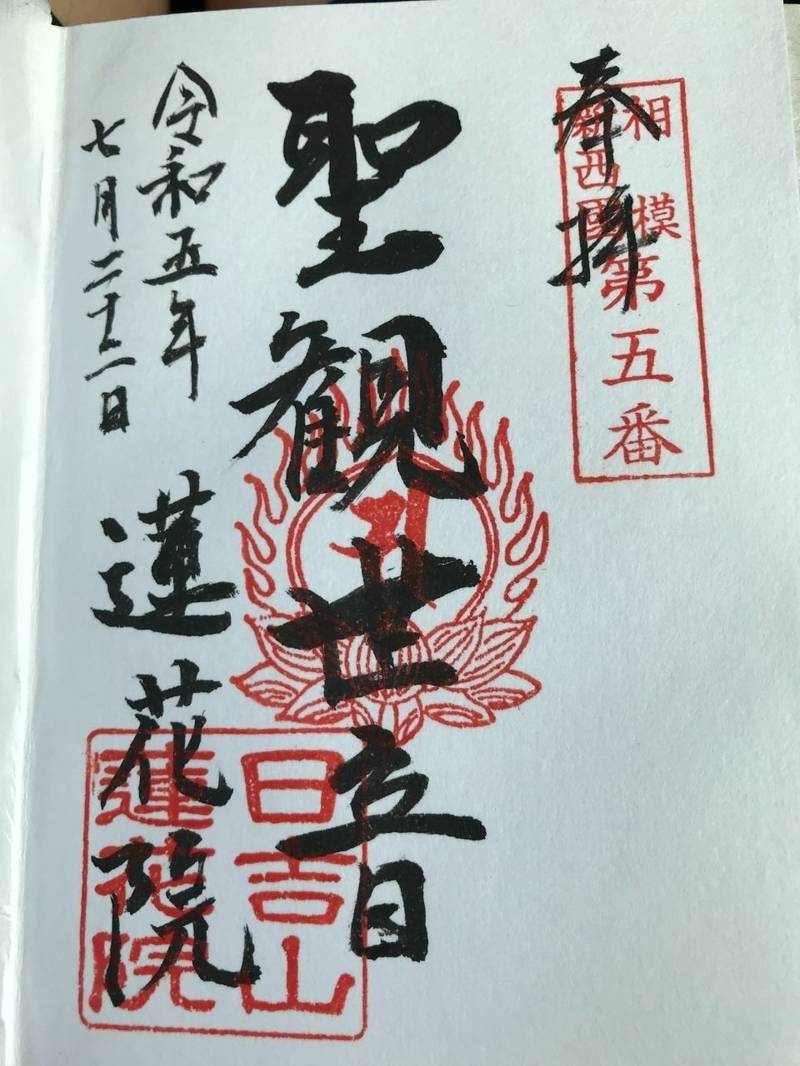 奉拝
相模
新西國
第五番
聖観世音
令和五年
七月二十二日
蓮花院
日吉山
蓮花院